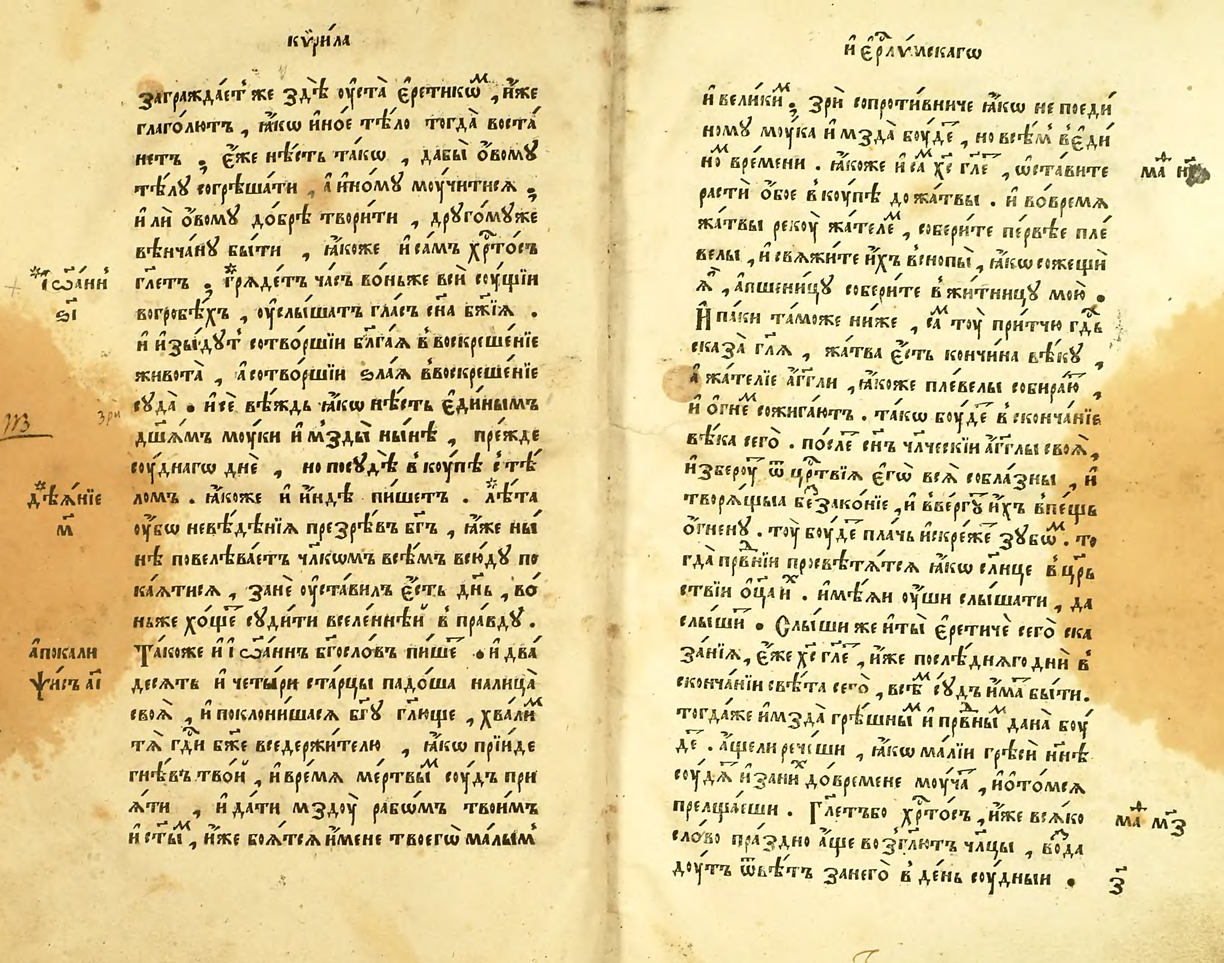 кѵри́ла
заграждае́тъ же здѣ̀ оу҆ста̀ є҆ретикѡ́м , и҆́же
глаго́лютъ , ꙗ҆́кѡ и҆но́е тѣ́ло тогда̀ воста́
нетъ ; є҆́же нѣ́сть та́кѡ , дабы̀ о҆́вомꙋ
тѣ́лꙋ согрѣша́ти , а҆ и҆но́мꙋ моу́читисѧ ;
и҆ лѝ о҆́вомꙋ до́брѣ твори́ти , дрꙋго́мꙋже
вѣнча́нꙋ бы́ти , ꙗ҆́коже и҆ са́мъ хр҃то́съ
гл҃етъ . * грѧде́тъ ча́съ во́ньже всѝ соу́щїи
вогробѣ́хъ , оу҆слы́шатъ гла́съ сн҃а бж҃їѧ .
и҆ и҆зы́дꙋтъ сотво́ршїи бл҃га́ѧ в воскреше́нїе
живота̀ , а҆сотво́ршїи ѕла́ѧ ввоскреше́нїе
сꙋда̀ . и҆сѐ вѣ́ждь ꙗ҆́кѡ нѣ́сть є҆ди́нымъ
дш҃а́мъ моу́ки и҆ мзды̀ ны́нѣ , пре́жде
соу́днагѡ днѐ , но посꙋдѣ̀ в кꙋ́пѣ с тѣ́
ломъ . ꙗ҆́коже и҆ и҆́ндѣ пи́шетъ . * лѣ́та
оу҆́бѡ невѣ́дѣнїѧ презрѣ́въ бг҃ъ , ꙗ҆́же ны́
нѣ повелѣва́етъ чл҃кѡмъ всѣ́мъ всю́дꙋ по
ка́ѧтисѧ , занѐ оу҆ста́вилъ є҆́сть дн҃ь , во́
ньже хо́ще сꙋди́ти вселе́ннѣй в пра́вдꙋ .
Та́коже и҆ і҆ѡа́ннъ бг҃осло́въ пи́ше . и҆ два́
десѧть и҆ четы́ри ста́рцы падо́ша налица̀
своѧ̀ , и҆ поклони́шасѧ бг҃ꙋ гл҃юще , хвали́м
тѧ̀ гд҃и бж҃е вседержи́телю , ꙗ҆́кѡ прїи́де
гнѣ́въ тво́й , и҆ вре́мѧ ме́ртвым соу́дъ при
ѧ́ти , и҆ да́ти мздоу̀ рабѡ́мъ твои́мъ
и҆ ст҃ым , и҆́же боѧ́тсѧ и҆́мене твоегѡ̀ ма́лым
* і҆ѡа́нн
ѕ҃і
* дѣѧ́нїе
м҃
а҆покали
ѱисъ а҃і
зри
и҆ є҆рⷭ҇лѵ́мскагѡ
и҆ вели́ким ; зрѝ сопроти́вниче ꙗ҆́кѡ не поеди́
номꙋ моу́ка и҆ мзда̀ боу́де , но всѣ́м в є҆ди́
но́м вре́мени . ꙗ҆́коже и҆ са́м хс҃ гл҃е , ѡ҆ста́вите
растѝ о҆́бое в коу́пѣ до жа́твы . и҆ во́времѧ
жа́твы рекоу̀ жа́телем , собери́те пе́рвѣе пле́
велы , и҆ свѧжи́те и҆́хъ в снопы̀ , ꙗ҆́кѡ сожещѝ
ѧ҆̀ , а҆пшени́цꙋ собери́те в жи́тницꙋ мою̀ .
И҆ па́ки та́може ни́же , са́м тоу̀ при́тчю гд҃ь
сказа̀ гл҃ѧ , жа́тва є҆́сть кончи́на вѣ́кꙋ ,
а҆ жа́телїе а҆́гг҃ли , ꙗ҆́коже пле́велы собира́ю ,
и҆ о҆гне́м сожига́ютъ . та́кѡ боу́де в сконча́нїе
вѣ́ка сего̀ . по́сле сн҃ъ чл҃ческїи а҆́гг҃лы своѧ̀ ,
и҆збероу́ ѿ црⷭ҇твїѧ є҆гѡ̀ всѧ̀ собла́зны , и҆
творѧ́щыѧ беззако́нїе , и҆ вве́ргꙋ и҆́хъ впе́щь
о҆́гненꙋ . тоу̀ боу́де пла́чь и҆скре́же зꙋбѡ́м . то
гда̀ првⷣнїи просвѣтѧ́тсѧ ꙗ҆́кѡ сл҃нце в црⷭ҇
ствїи о҆ц҃а и҆х . и҆мѣ́ѧи оу҆́ши слы́шати , да
слы́ши . Слы́ши же и҆ ты̀ є҆рети́че сего̀ ска
за́нїѧ , є҆́же хс҃ гл҃е , и҆́же послѣ́днѧго днѝ в
сконча́нїи свѣ́та сего̀ , всѣ́м сꙋ́дъ и҆́ма бы́ти .
тогда́же и҆ мзда̀ грѣ́шным и҆ првⷣным дана̀ боу́
де . а҆́щели рече́ши , ꙗ҆́кѡ ма́лїи грѣсѝ нн҃ѣ
соу́дѧ и҆ зани́х до́времене моу́ча , и҆ о҆то́мсѧ
прелща́еши . Гл҃етъбо хр҃то́съ , и҆́же всѧ́ко
сло́во пра́здно а҆́ще возгл҃ютъ чл҃цы , во́зда
доу́тъ ѿвѣ́тъ занего̀ в де́нь соу́дныи .
маⷴ
маⷴ м҃з
з҃